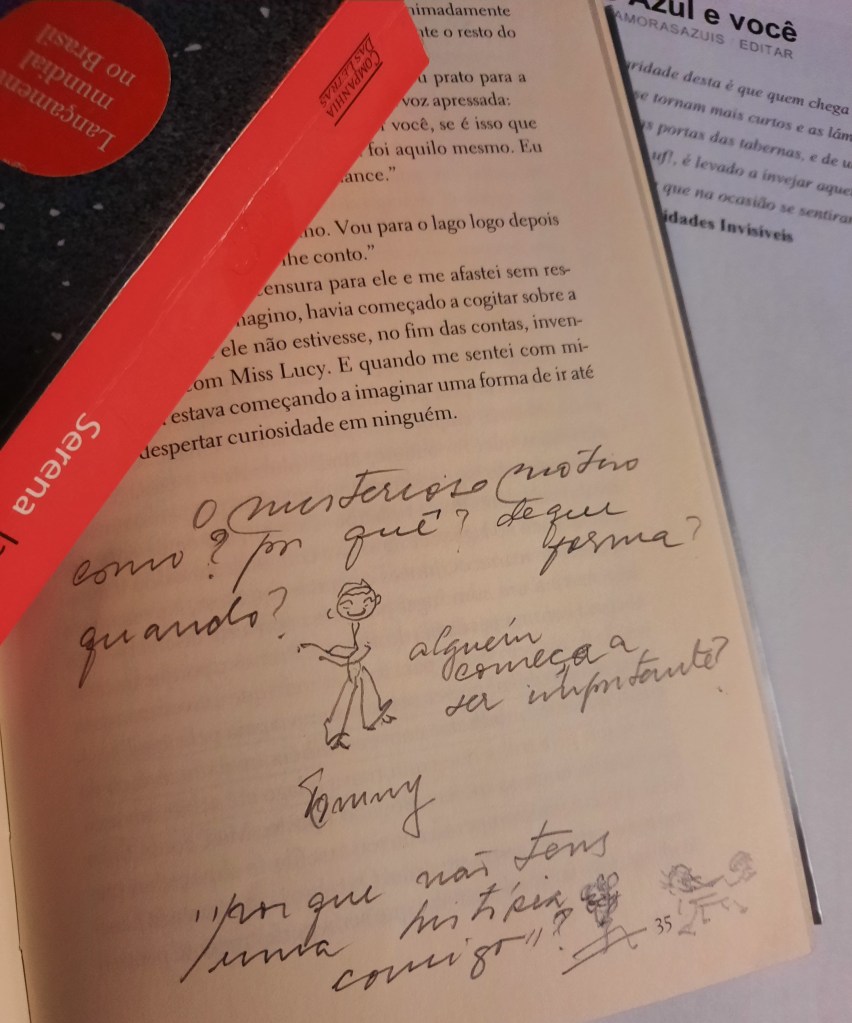 Lançament
mundial
no Brasil
COMPANHIA
DAS LETRAS
Serena
nimadamente
nte o resto do
u prato para a
voz apressada:
r você, se é isso que
foi aquilo mesmo. Eu
ance.”
ho. Vou para o lago logo depois
lhe conto.”
ensura para ele e me afastei sem res-
nagino, havia começado a cogitar sobre a
ele não estivesse, no fim das contas, inven-
com Miss Lucy. E quando me sentei com mi-
estava começando a imaginar uma forma de ir até
despertar curiosidade em ninguém.
O misterioso motivo
como? por quê? de que
forma?
quando?
alguém
começa a
ser importante?
Tommy
"por que não tens
uma história
comigo"?
35
Azul e você
AMORASAZUIS EDITAR
uridade desta é que quem chega
se tornam mais curtos e as lâm
s portas das tabernas, e de u
uf!, é levado a invejar aque
que na ocasião se sentiram
idades Invisíveis